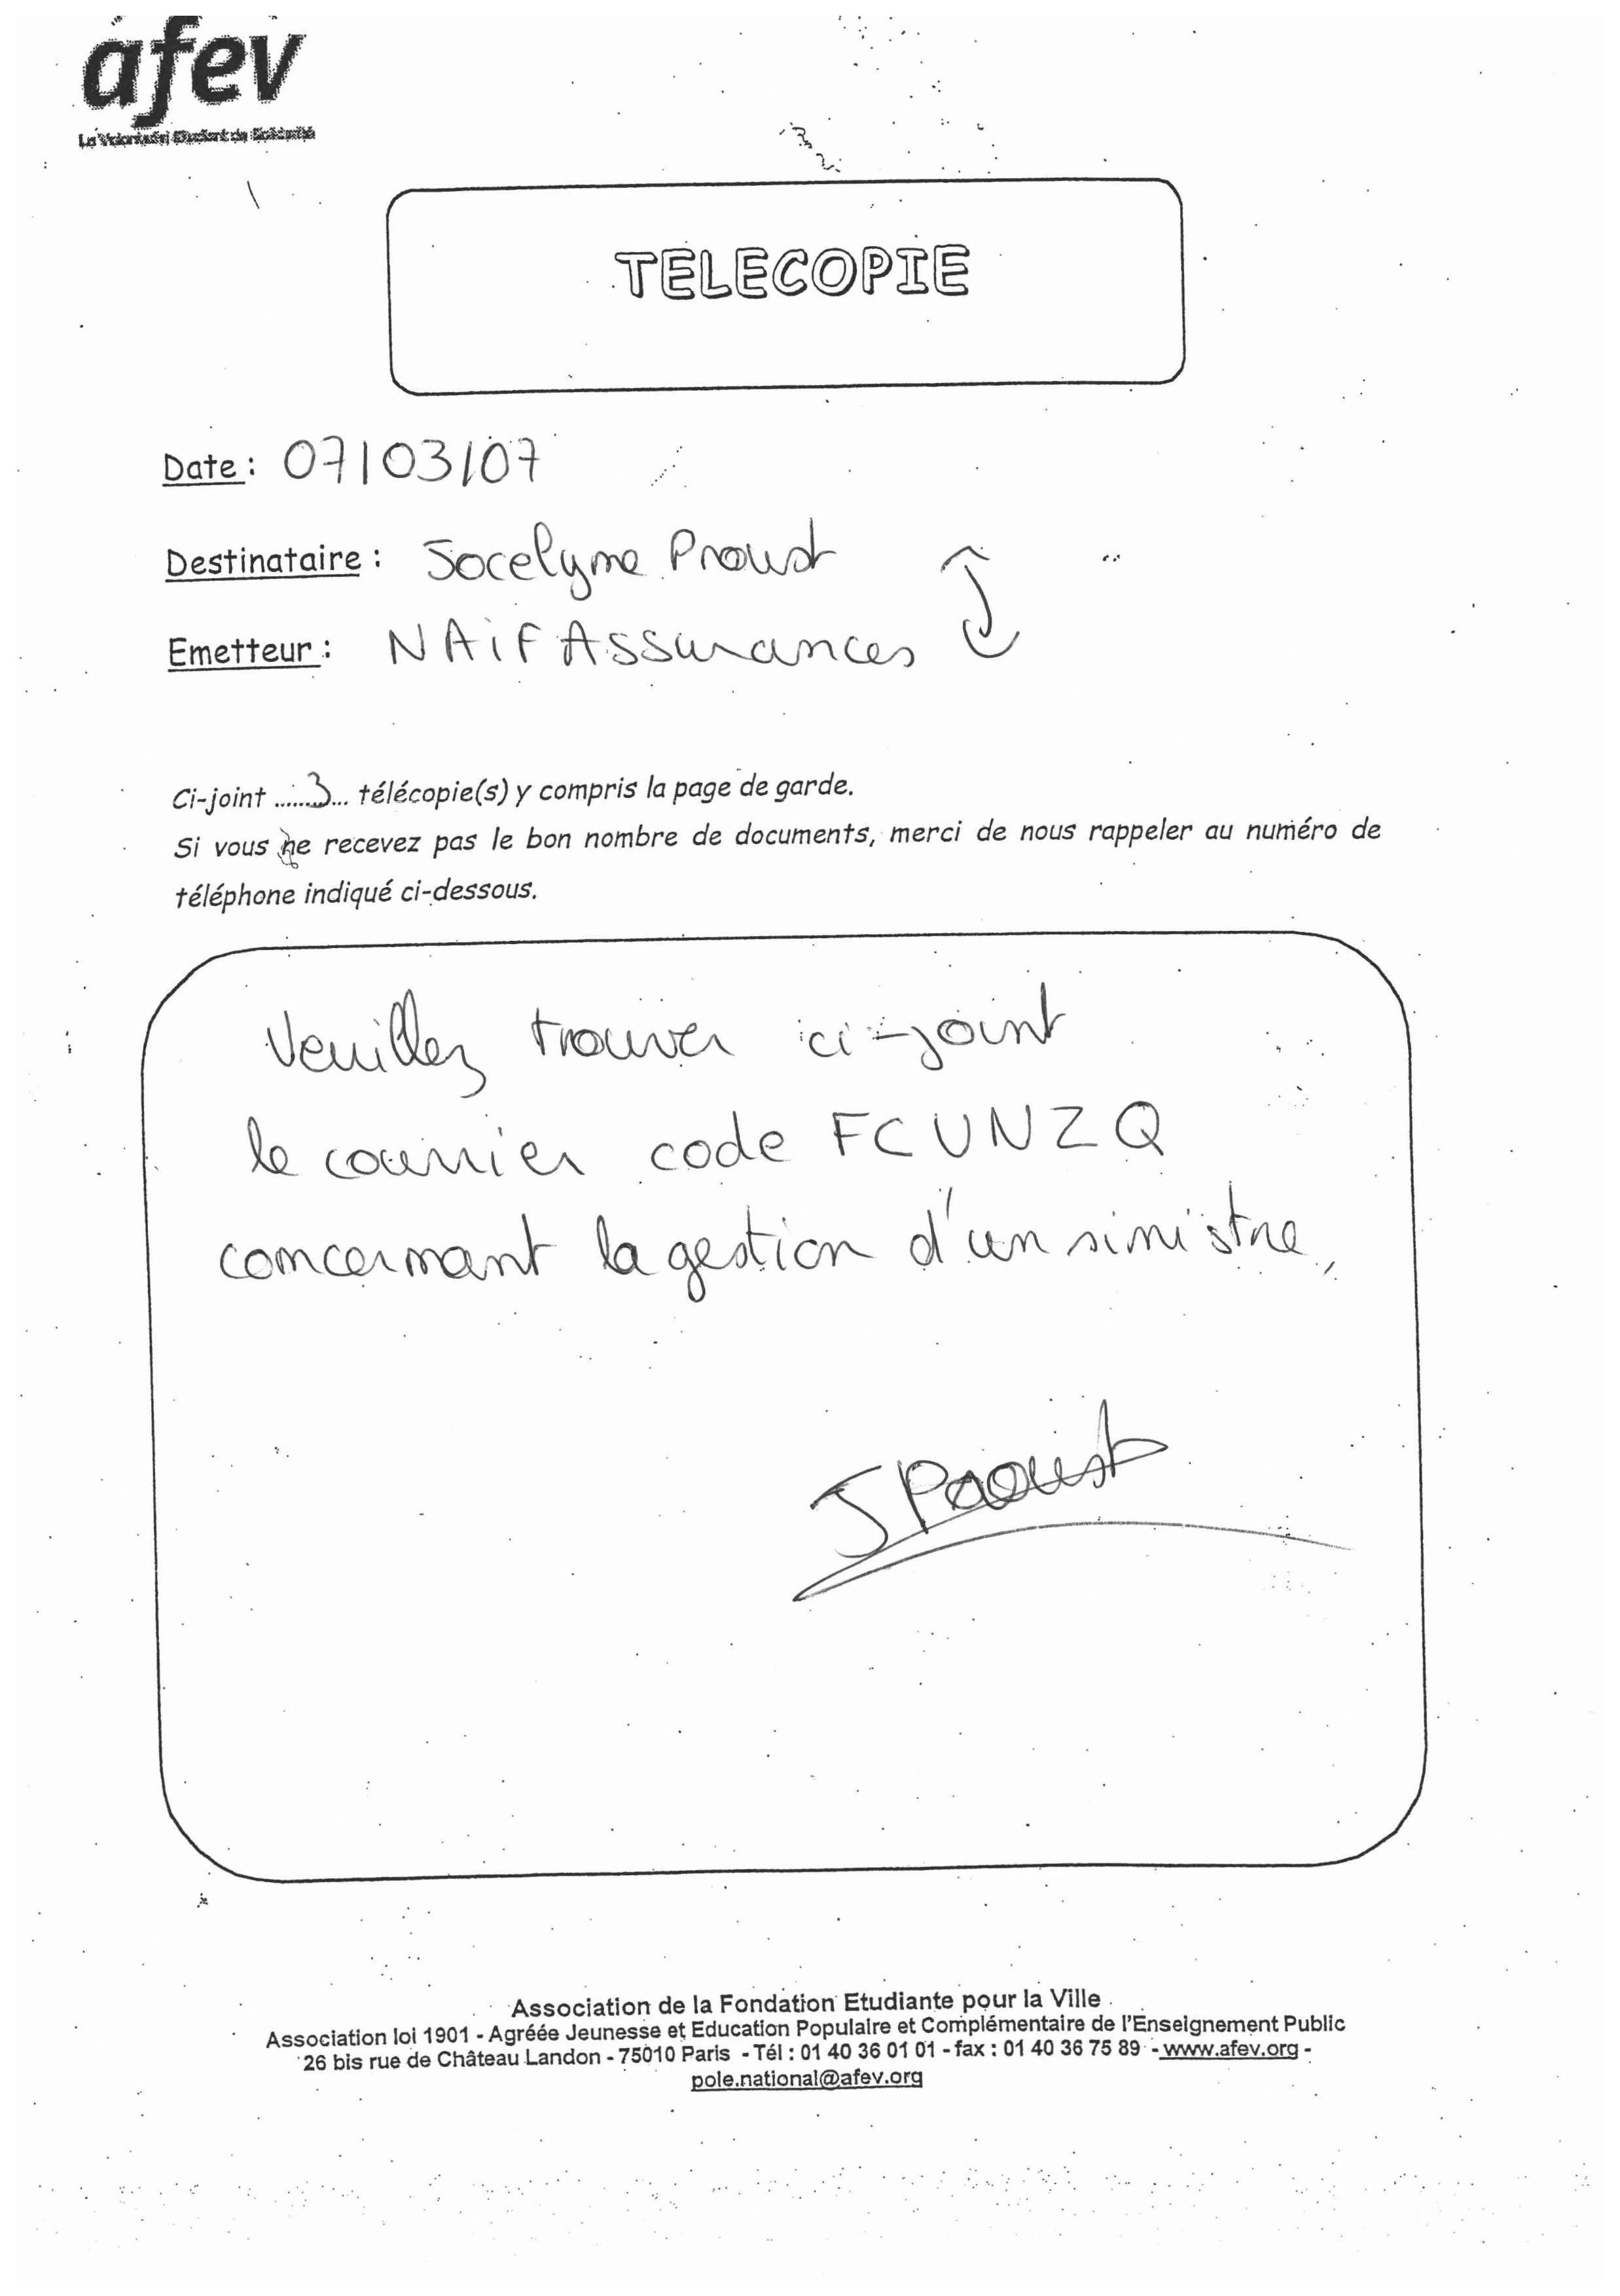 afev
TELECOPIE
Date : 07/03/07
Destinataire : Jocelyne Proust
Emetteur : NAiF Assurances
Ci-joint ......3... télécopie(s) y compris la page de garde.
Si vous ne recevez pas le bon nombre de documents, merci de nous rappeler au numéro de
téléphone indiqué ci-dessous.
Veuillez trouver ci-joint
le courrier code FCUNZQ
concernant la gestion d'un sinistre,
J Proust
Association de la Fondation Etudiante pour la Ville
Association loi 1901 - Agréée Jeunesse et Education Populaire et Complémentaire de l'Enseignement Public
26 bis rue de Château Landon - 75010 Paris - Tél : 01 40 36 01 01 - fax : 01 40 36 75 89 - www.afev.org -
pole.national@afev.org